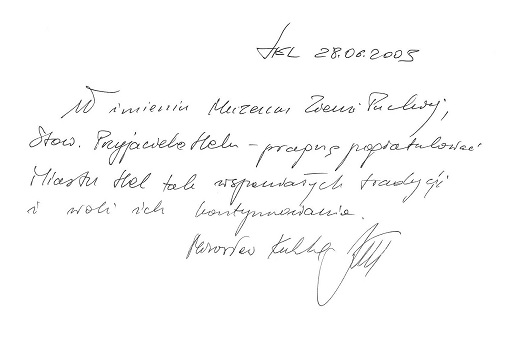 HEL 28.06.2003
W imieniu Muzeum Ziemi Puckiej,
Stow. Przyjaciele Helu – pragnę pogratulować
Miastu Hel tak wspaniałych tradycji
i woli ich kontynuowania.
Mirosław Kuklik